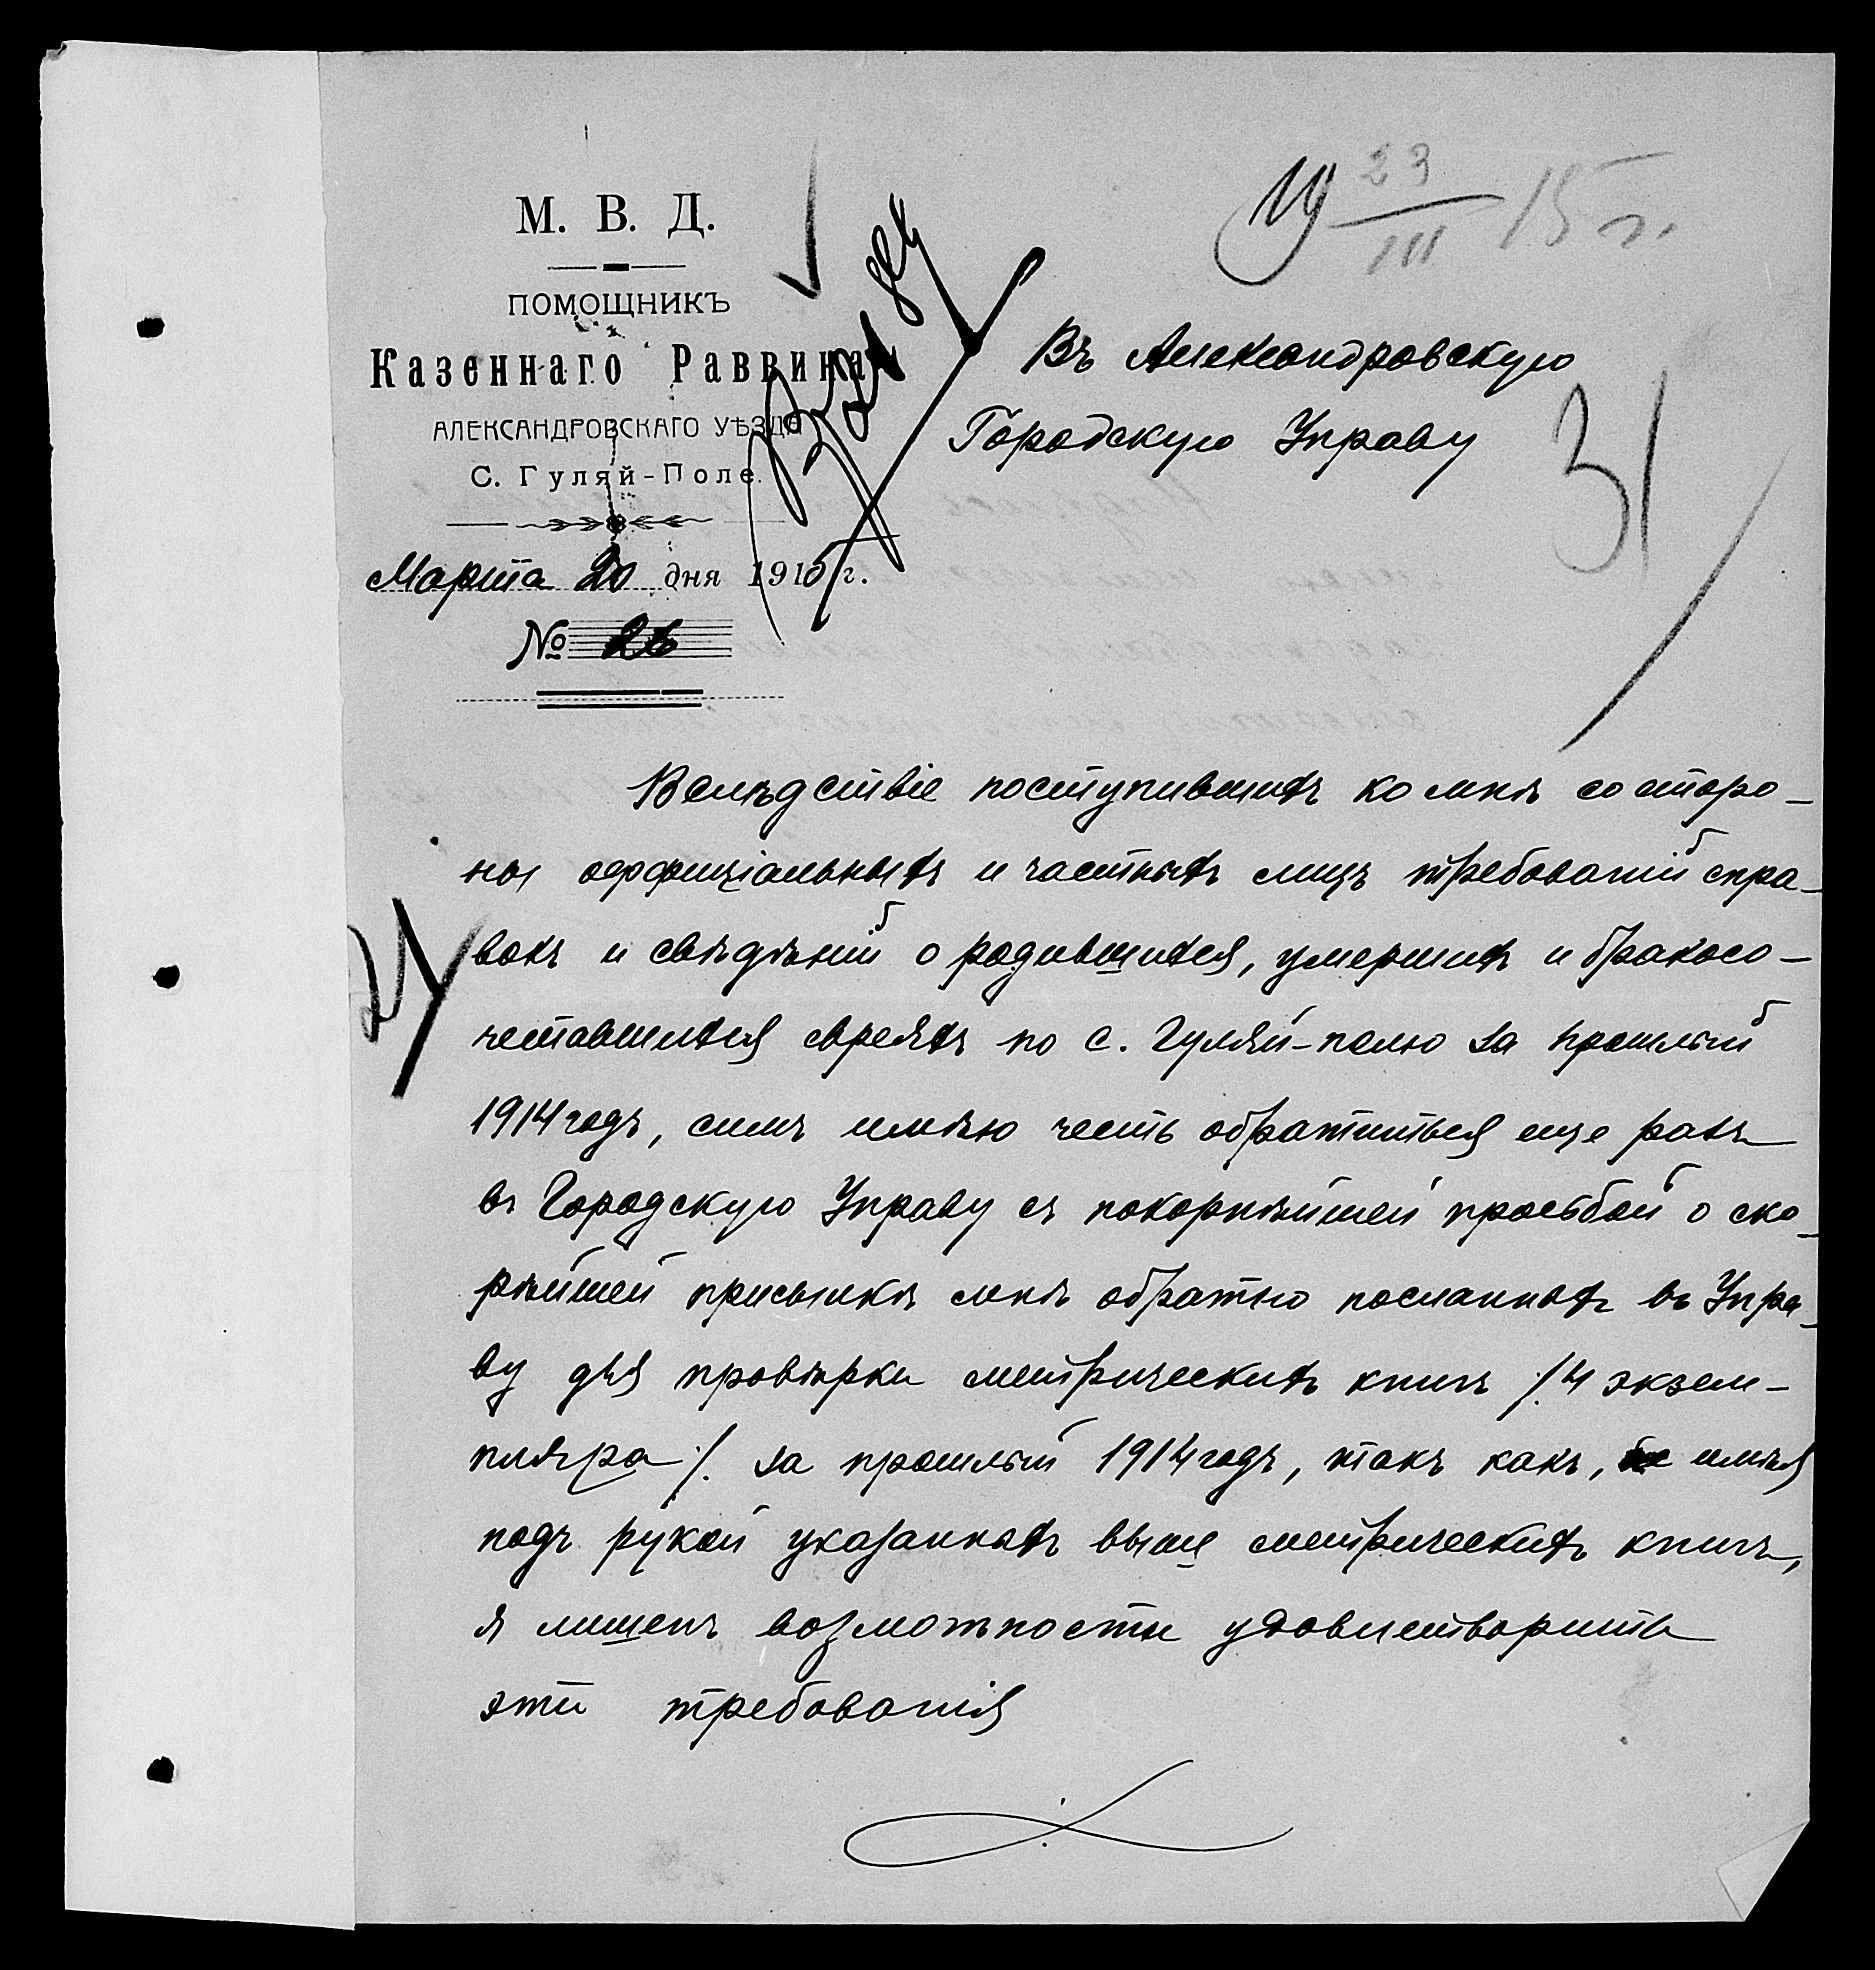 М. В. Д.
ПОМОЩНИКЪ
Казеннаго Раввина
АЛЕКСАНДРОВСКАГО УѢЗДА
С. Гуляй-Поле.
Марта 20 дня 1915 г.
№ 26
23/III 15 г.
Въ Александровскую
Городскую Управу
31
Вслѣдствіе поступившихъ ко мнѣ со сторо-
ны оффиціальныхъ и частныхъ лицъ требованій спра-
вокъ и свѣдѣній о родившихся, умершихъ и бракосо-
четавшихся евреяхъ по с. Гуляй-полю за прошлый
1914 годъ, симъ имѣю честь обратиться еще разъ
въ Городскую Управу съ покорнѣйшей просьбой о ско-
рѣйшей присылкѣ мнѣ обратно посланныхъ въ Упра-
ву для провѣрки метрическихъ книгъ /.4 экзем-
пляра./. за прошлый 1914 годъ, такъ какъ, не имѣя
подъ рукой указанныхъ выше метрическихъ книгъ,
я лишенъ возможности удовлетворить
эти требованія